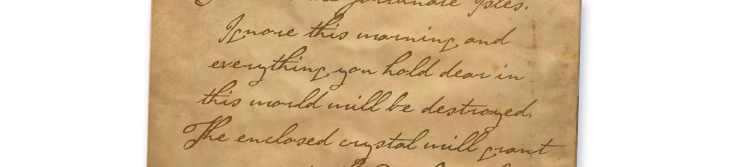 fortunate Isles.
Ignore this warning and
everything you hold dear in
this world will be destroyed.
The enclosed crystal will grant